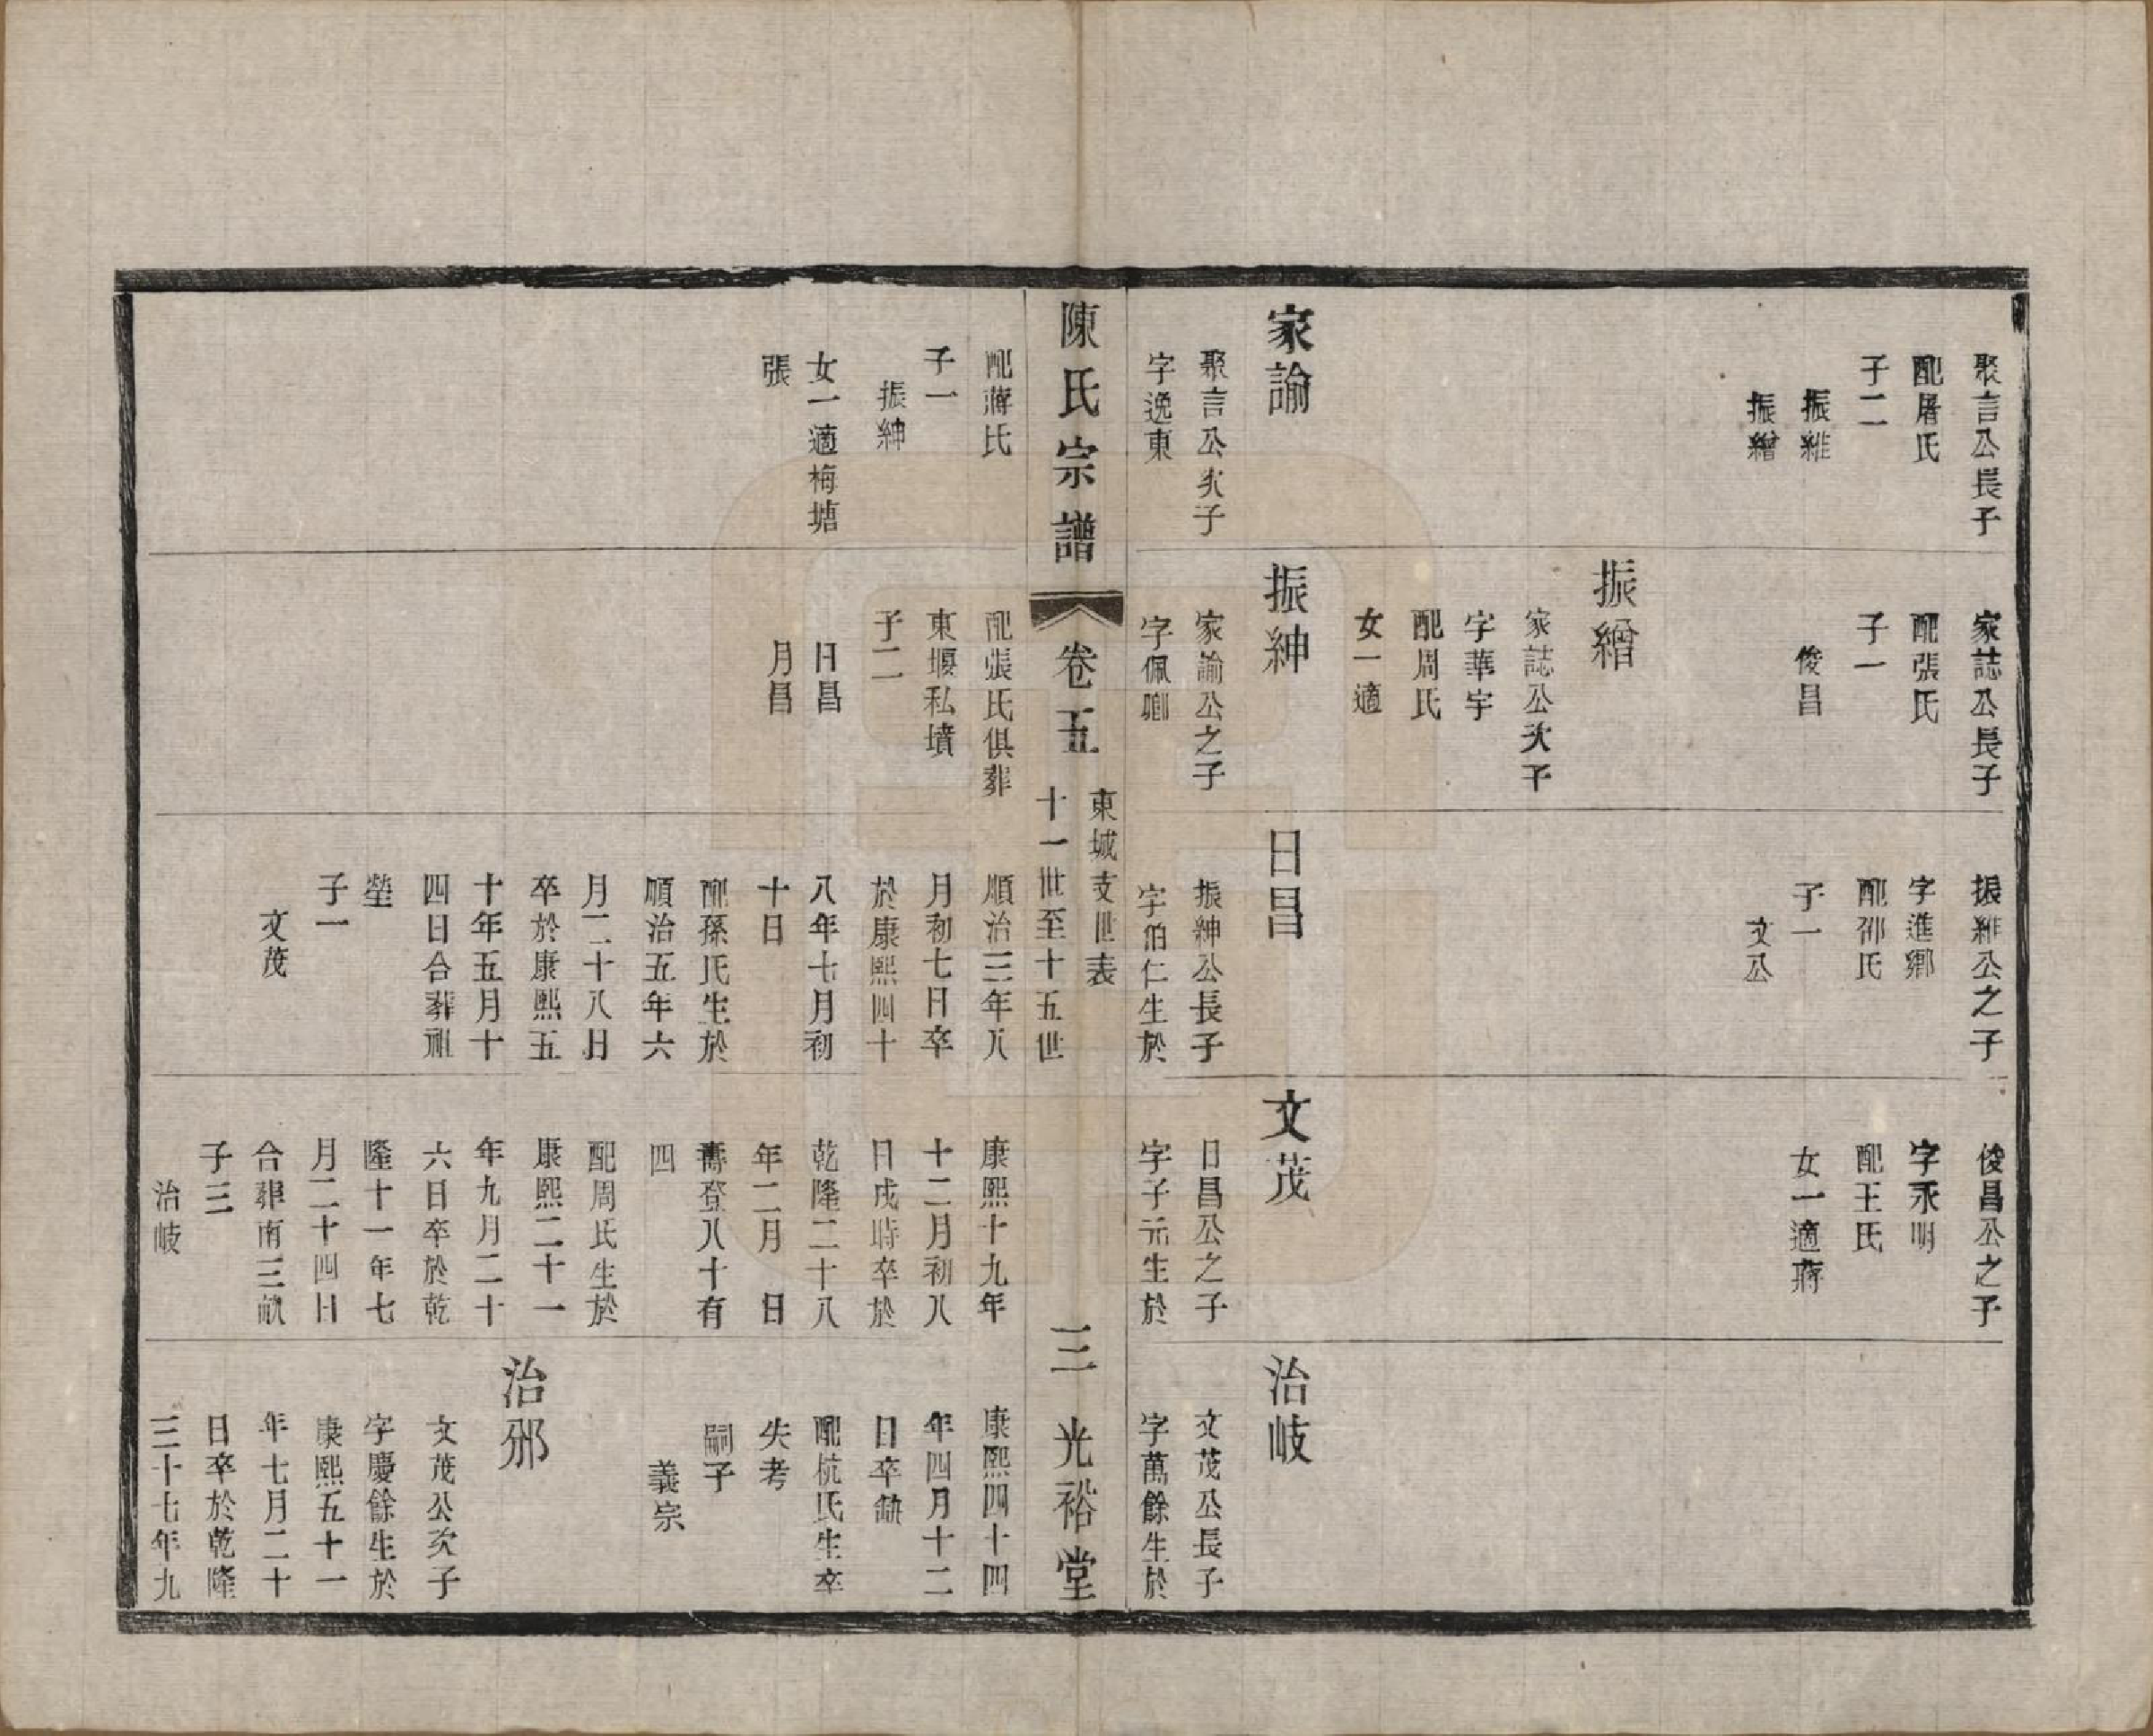 聚言公長子
配屠氏
子二
振維
振繒
家諭
聚言公次子
字逸東
家誌公長子
配張氏
子一
俊昌
振繒
家誌公次子
字華宇
配周氏
女一適
振紳
家諭公之子
字佩卿
振維公之子
字進卿
配邵氏
子一
文公
日昌
振紳公長子
字伯仁生於
俊昌公之子
字永明
配王氏
女一適蔣
文茂
日昌公之子
字子元生於
治岐
文茂公長子
字萬餘生於
陳氏宗譜
卷五
東城支世表
十一世至十五世
三
光裕堂
配蔣氏
子一
振紳
女一適梅塘
張
配張氏俱葬
東堰私墳
子二
日昌
月昌
順治三年八
月初七日卒
於康熙四十
八年七月初
十日
配孫氏生於
順治五年六
月二十八日
卒於康熙五
十年五月十
四日合葬祖
塋
子一
文茂
康熙十九年
十二月初八
日戌時卒於
乾隆二十八
年二月 日
壽登八十有
四
配周氏生於
康熙二十一
年九月二十
六日卒於乾
隆十一年七
月二十四日
合葬南三畝
子三
治岐
康熙四十四
年四月十二
日卒缺
配杭氏生卒
失考
嗣子
義宗
治邠
文茂公次子
字慶餘生於
康熙五十一
年七月二十
日卒於乾隆
三十七年九